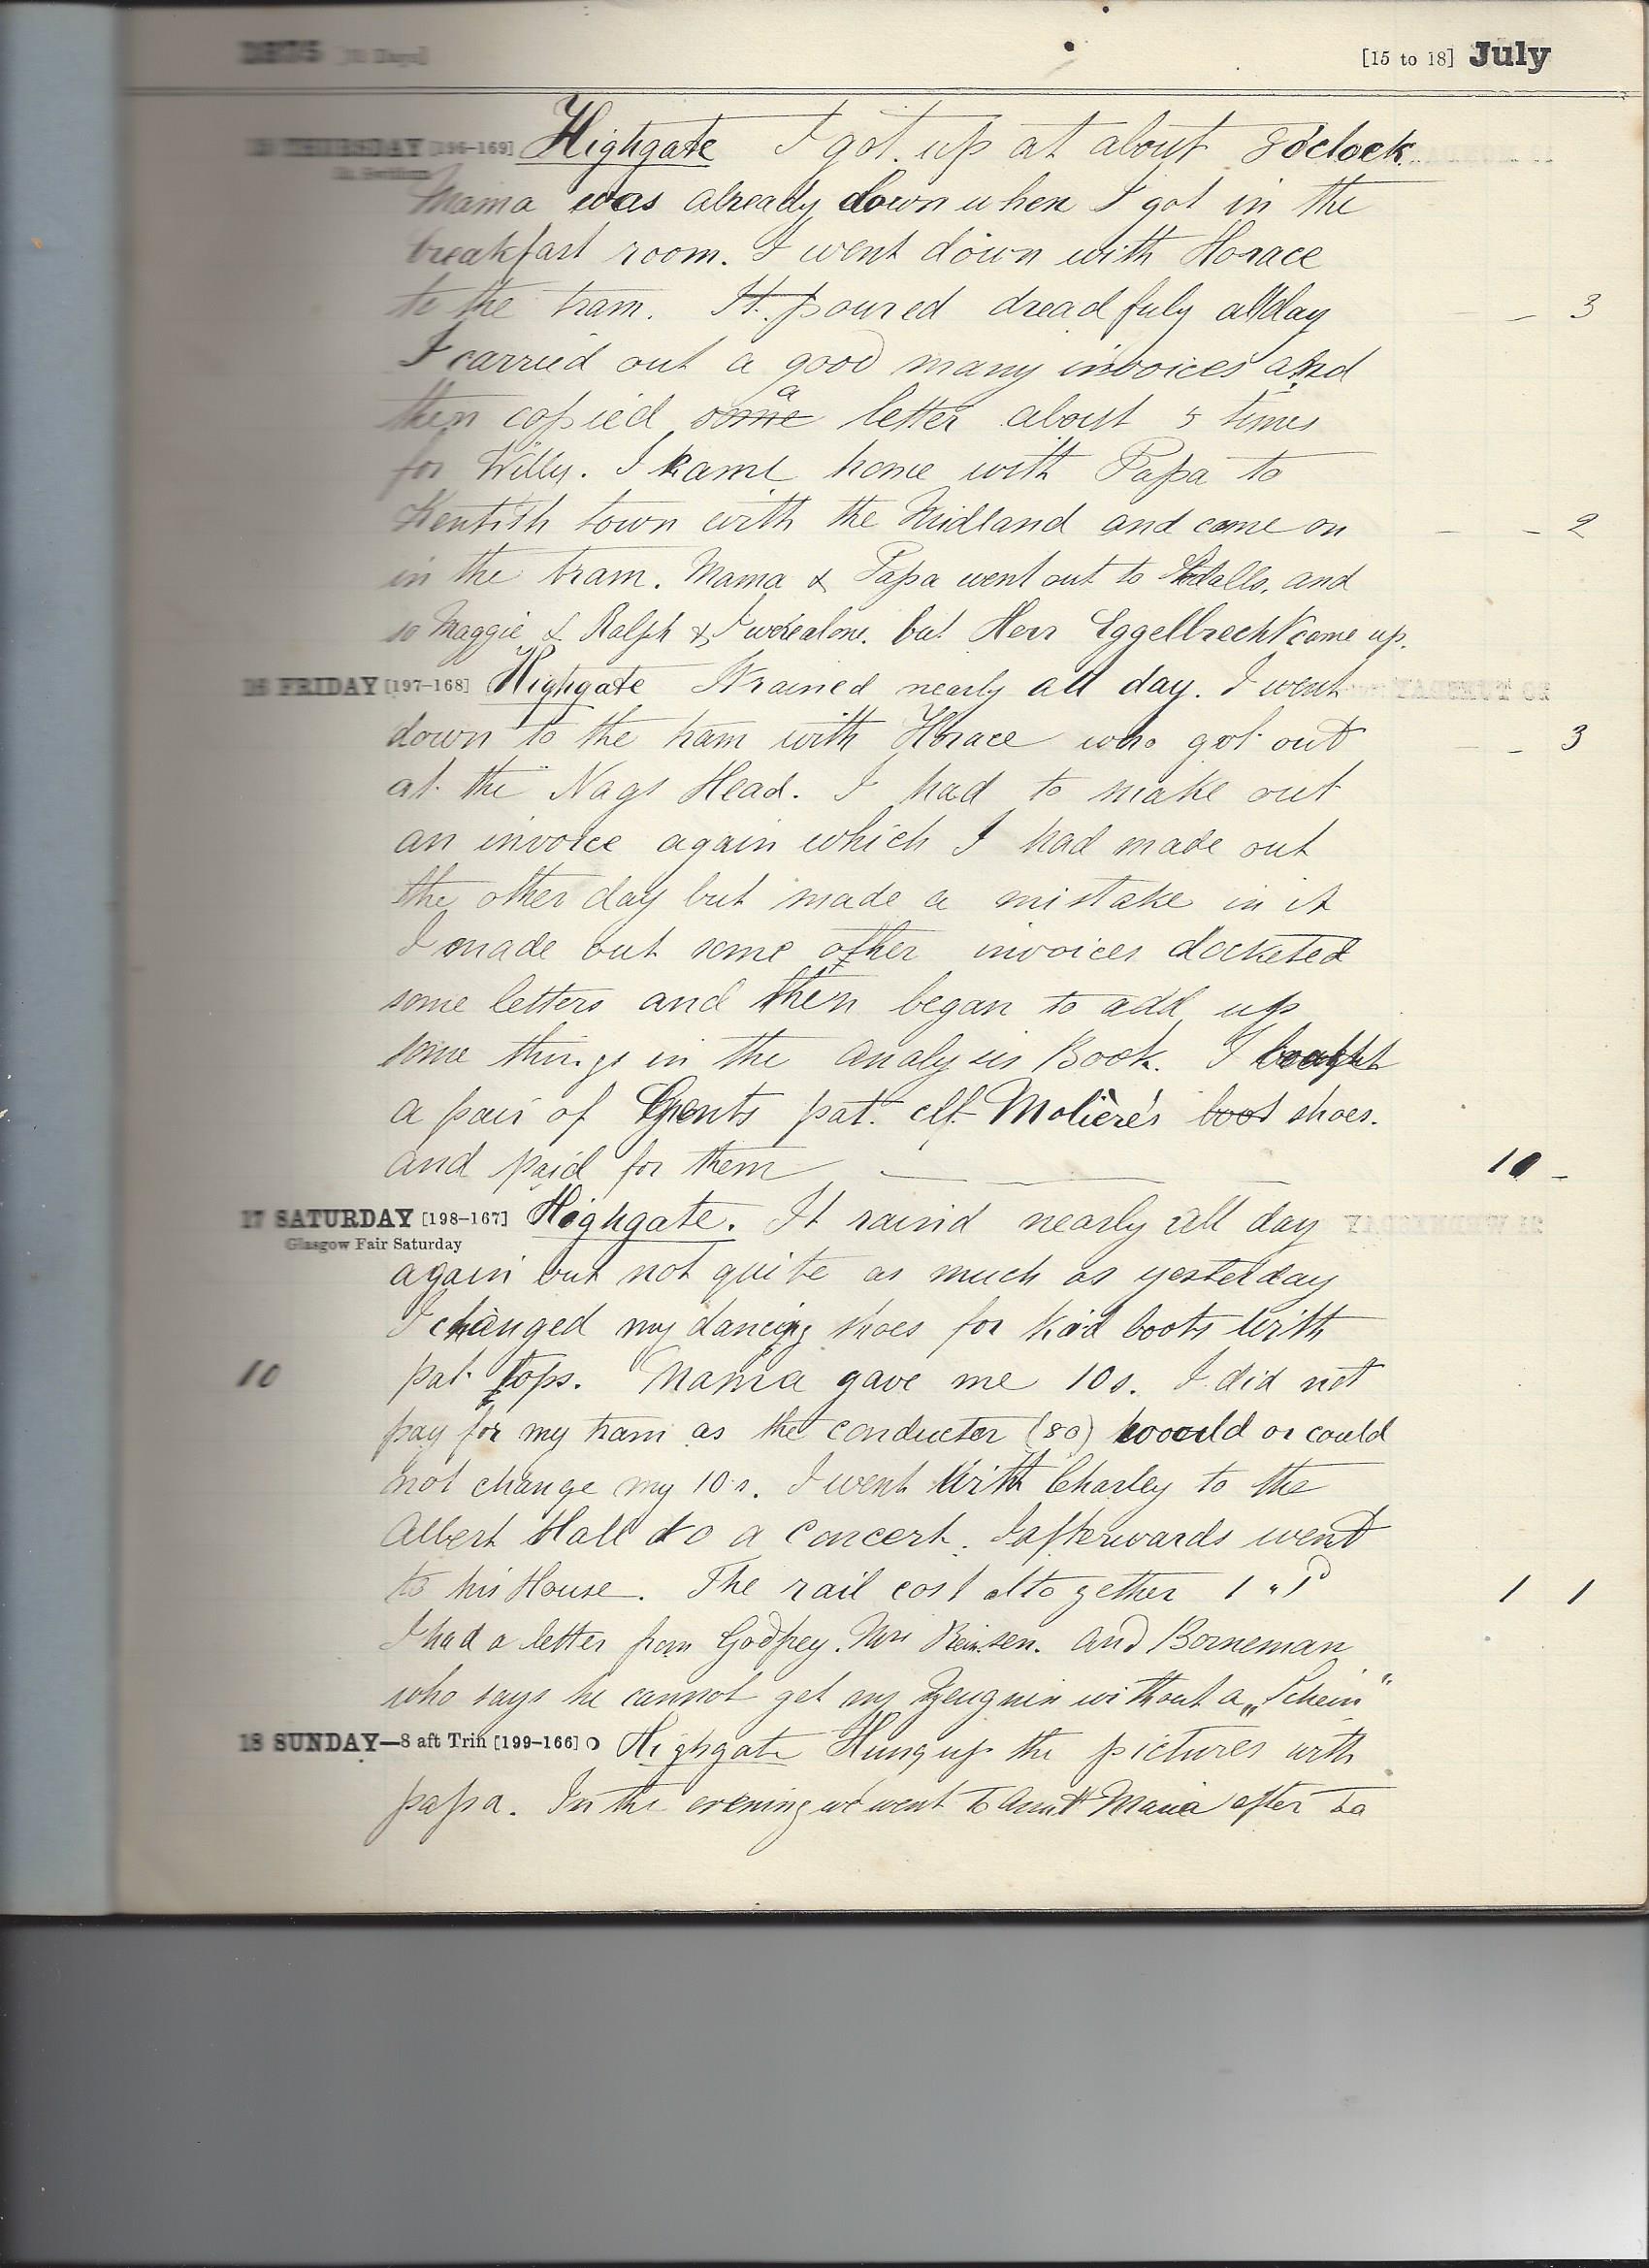 1875 [31 Days] [15 to 18] July
15 THURSDAY [196-169] Highgate I got up at about 8 o'clock.
St. Swithin
Mama was already down when I got in the
breakfast room. I went down with Horace
to the tram. It poured dreadfuly all day - 3
I carried out a good many invoices and
a
then copied some letter about 5 times
for Willy. I came home with Papa to
Kentish town with the Midland and come on - - 2
in the tram. Mama & Papa went out to and
so Maggie & Ralph & I were alone. but Herr Eggelbrecht come up.
16 FRIDAY [197-168] Highgate It rained nearly all day. I went
down to the tram with Horace who got out - - 3
at the Nags Head. I had to make out
an invoice again which I had made out
the other day but made a mistake in it
I made out some other invoices docketed
some letters and then began to add up
some things in the Analysis Book. I bought
a pair of Gents pat. clf. Molière's boot shoes.
and paid for them — 10 -
17 SATURDAY [198-167] Highgate. It raind nearly all day
Glasgow Fair Saturday
again but not quite as much as yesterday
I changed my dancing shoes for kid boots with
10 pat. tops. Mama gave me 10s. I did not
pay for my tram as the conductor (80) would or could
not change my 10s. I went with Charley to the
Albert Hall to a Concert. I afterwards went
to his House. The rail cost altogether 1 " 1D 1 1
I had a letter from Godfrey. Mrs and Borneman
who says he cannot get my Zeugniss without a „Schein"
18 SUNDAY—8 aft Trin [199-166] Highgate Hung up the pictures with
papa. In the evening we went to Aunt Maria after to